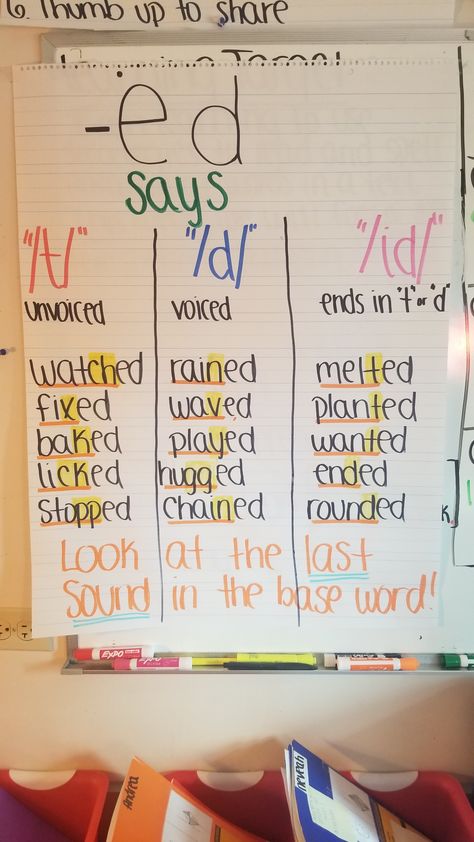 6. Thumb up to share
-ed
says
"/t/" "/d/" "/id/"
unvoiced voiced ends in "t" or "d"
watched rained melted
fixed waved planted
baked played wanted
licked hugged ended
stopped chained rounded
Look at the last
sound in the base word!
EXPO
Andrea